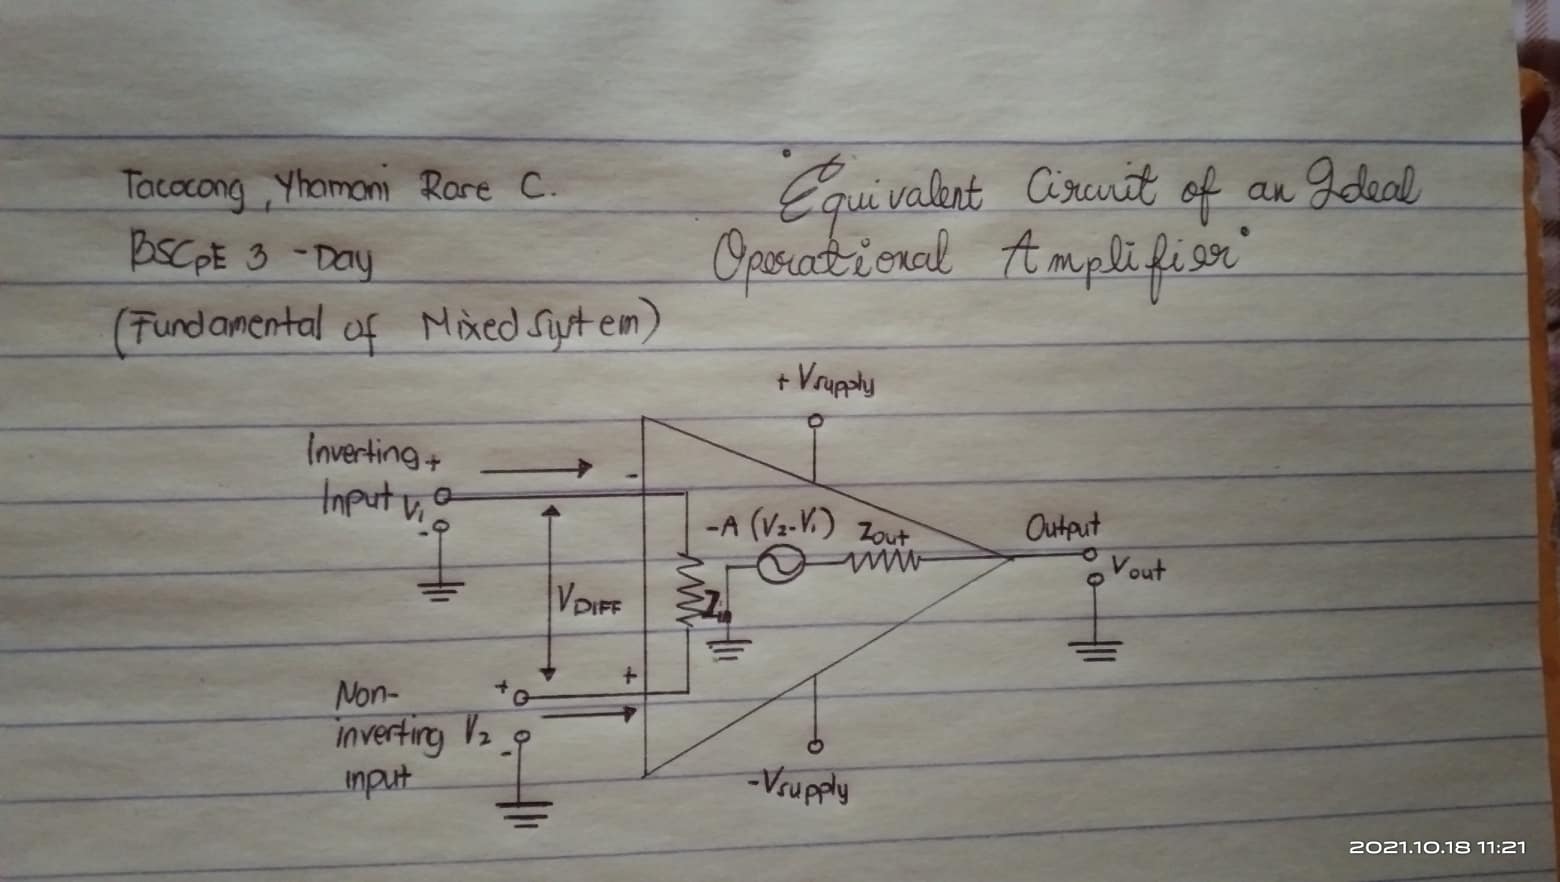 Tacacang, Yhamani Rare C.
BSCpE 3 - Day
(Fundamental of Mixed System)
"Equivalent Circuit of an Ideal
Operational Amplifier"
+ Vsupply
Inverting +
Input V1
-
-
-A (V2-V1)
Zout
Output
Vout
VDIFF
Zin
Non-
inverting V2
input
+
+
-
-Vsupply
2021.10.18 11:21